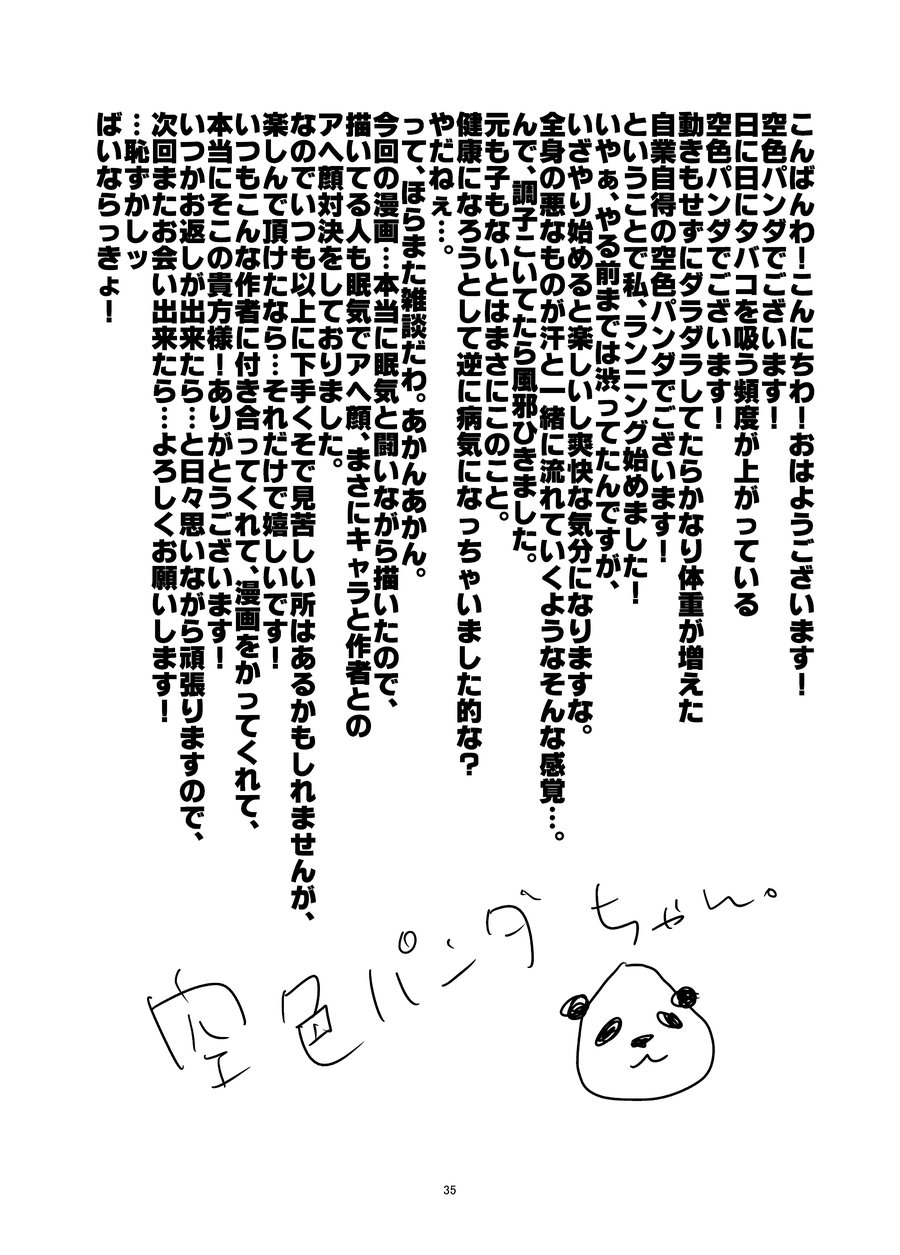 こんばんわ！こんにちわ！おはようございます！
空色パンダでございます！
日に日にタバコを吸う頻度が上がっている
空色パンダでございます！
動きもせずにダラダラしてたらかなり体重が増えた
自業自得の空色パンダでございます！
ということで私、ランニング始めました！
いやぁ、やる前までは渋ってたんですが、
いざやり始めると楽しいし爽快な気分になりますな。
全身の悪なものが汗と一緒に流れていくようなそんな感覚…。
んで、調子こいてたら風邪ひきました。
元も子もないとはまさにこのこと。
健康になろうとして逆に病気になっちゃいました的な？
やだねぇ…。
って、ほらまた雑談だわ。あかんあかん。
今回の漫画…本当に眠気と闘いながら描いたので、
描いてる人も眠気でアヘ顔、まさにキャラと作者との
アヘ顔対決をしておりました。
なのでいつも以上に下手くそで見苦しい所はあるかもしれませんが、
楽しんで頂けたなら…それだけで嬉しいです！
いつもこんな作者に付き合ってくれて、漫画をかってくれて、
本当にそこの貴方様！ありがとうございます！
いつかお返しが出来たら…と日々思いながら頑張りますので、
次回またお会い出来たら…よろしくお願いします！
…恥ずかしッ
ばいならっきょ！
空色パンダちゃん。
35